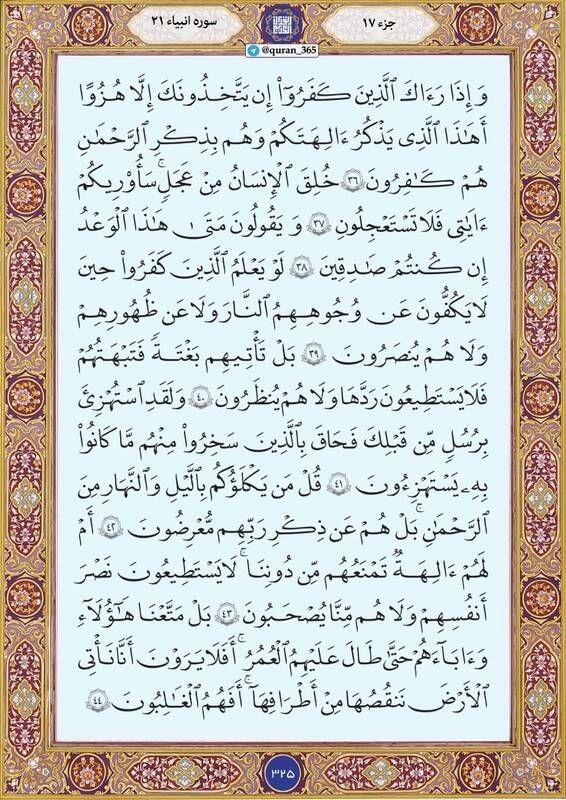 جزء ۱۷
سوره انبیاء ۲۱
@quran_365
وَ إِذَا رَءَاكَ ٱلَّذِينَ كَفَرُوٓا۟ إِن يَتَّخِذُونَكَ إِلَّا هُزُوًا
أَهَٰذَا ٱلَّذِى يَذْكُرُ ءَالِهَتَكُمْ وَهُم بِذِكْرِ ٱلرَّحْمَٰنِ
هُمْ كَٰفِرُونَ ۳۶ خُلِقَ ٱلْإِنسَانُ مِنْ عَجَلٍ ۚ سَأُو۟رِيكُمْ
ءَايَٰتِى فَلَا تَسْتَعْجِلُونِ ۳۷ وَ يَقُولُونَ مَتَىٰ هَٰذَا ٱلْوَعْدُ
إِن كُنتُمْ صَٰدِقِينَ ۳۸ لَوْ يَعْلَمُ ٱلَّذِينَ كَفَرُوا۟ حِينَ
لَا يَكُفُّونَ عَن وُجُوهِهِمُ ٱلنَّارَ وَلَا عَن ظُهُورِهِمْ
وَلَا هُمْ يُنصَرُونَ ۳۹ بَلْ تَأْتِيهِم بَغْتَةً فَتَبْهَتُهُمْ
فَلَا يَسْتَطِيعُونَ رَدَّهَا وَلَا هُمْ يُنظَرُونَ ۴۰ وَلَقَدِ ٱسْتُهْزِئَ
بِرُسُلٍ مِّن قَبْلِكَ فَحَاقَ بِٱلَّذِينَ سَخِرُوا۟ مِنْهُم مَّا كَانُوا۟
بِهِۦ يَسْتَهْزِءُونَ ۴۱ قُلْ مَن يَكْلَؤُكُم بِٱلَّيْلِ وَٱلنَّهَارِ مِنَ
ٱلرَّحْمَٰنِ ۚ بَلْ هُمْ عَن ذِكْرِ رَبِّهِم مُّعْرِضُونَ ۴۲ أَمْ
لَهُمْ ءَالِهَةٌ تَمْنَعُهُم مِّن دُونِنَا ۚ لَا يَسْتَطِيعُونَ نَصْرَ
أَنفُسِهِمْ وَلَا هُم مِّنَّا يُصْحَبُونَ ۴۳ بَلْ مَتَّعْنَا هَٰٓؤُلَآءِ
وَءَابَآءَهُمْ حَتَّىٰ طَالَ عَلَيْهِمُ ٱلْعُمُرُ ۗ أَفَلَا يَرَوْنَ أَنَّا نَأْتِى
ٱلْأَرْضَ نَنقُصُهَا مِنْ أَطْرَافِهَآ ۚ أَفَهُمُ ٱلْغَٰلِبُونَ ۴۴
۳۲۵